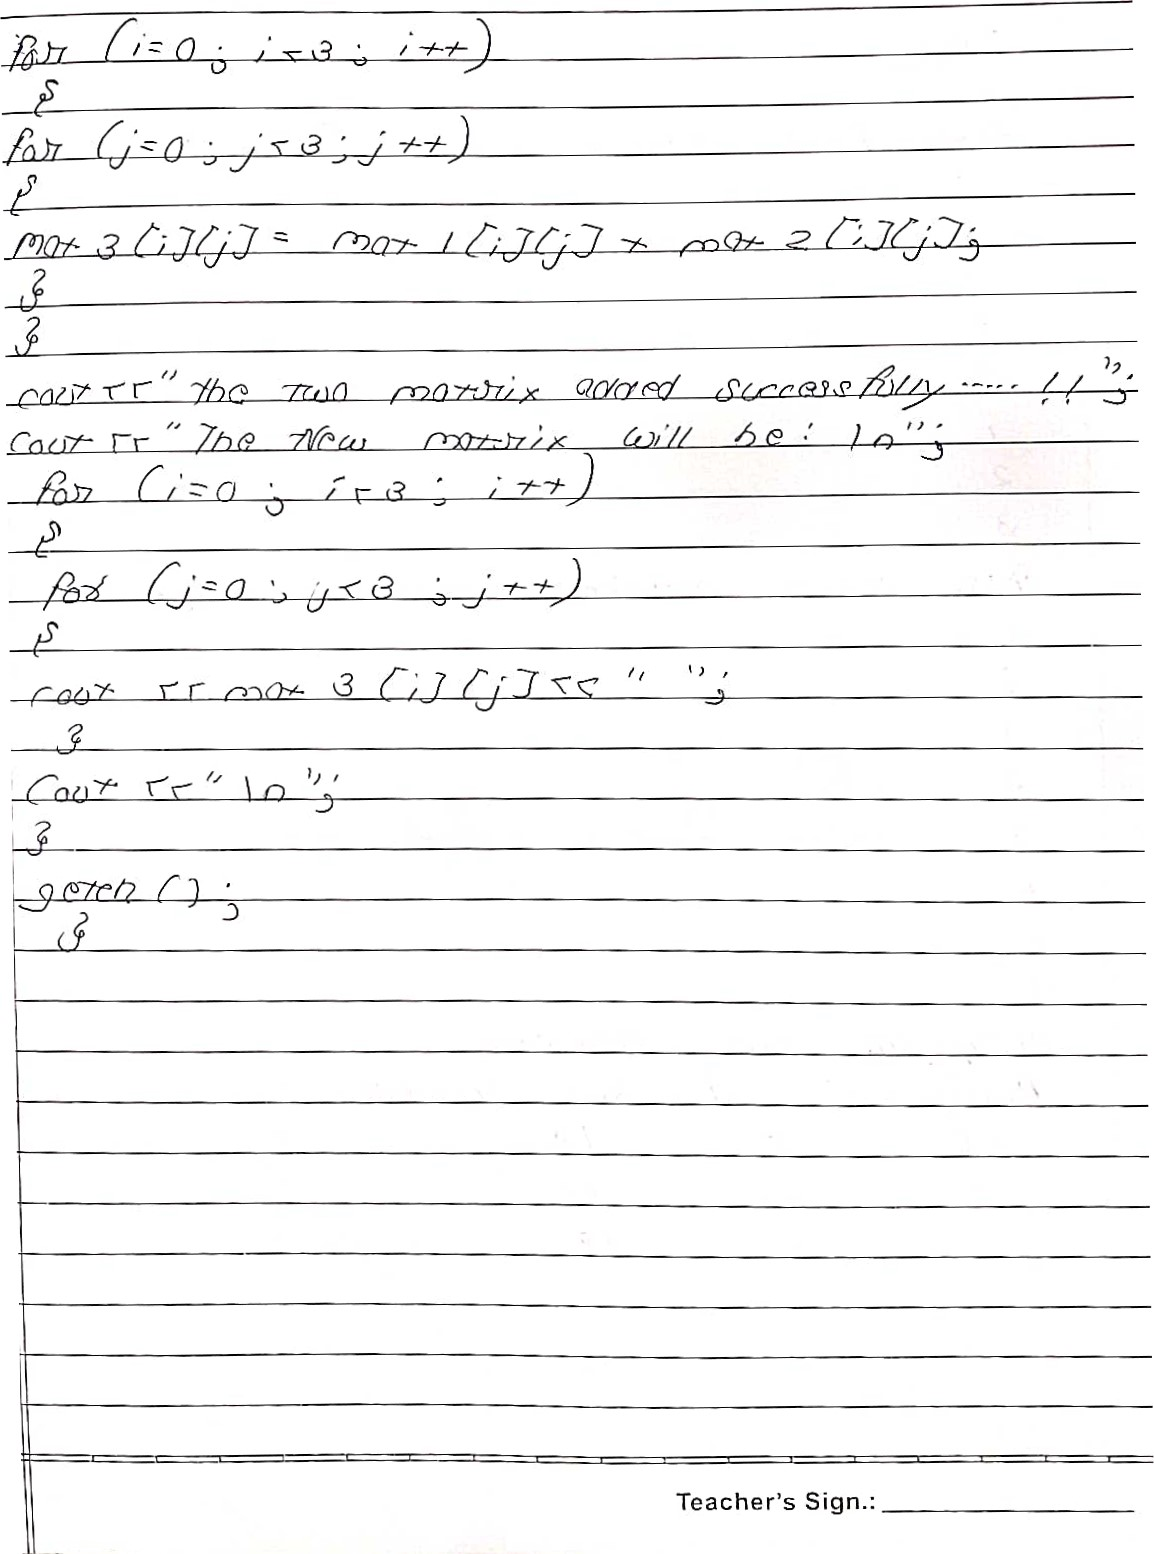 for (i=0; i<3; i++)
{
for (j=0; j<3; j++)
{
mat3[i][j] = mat1[i][j] + mat2[i][j];
}
}
cout<<"the two matrix added successfully.....!!";
cout<<"The New matrix will be: \n";
for (i=0; i<3; i++)
{
for (j=0; j<3; j++)
{
cout<<mat3[i][j]<<" ";
}
cout<<"\n";
}
getch();
}
Teacher's Sign.: